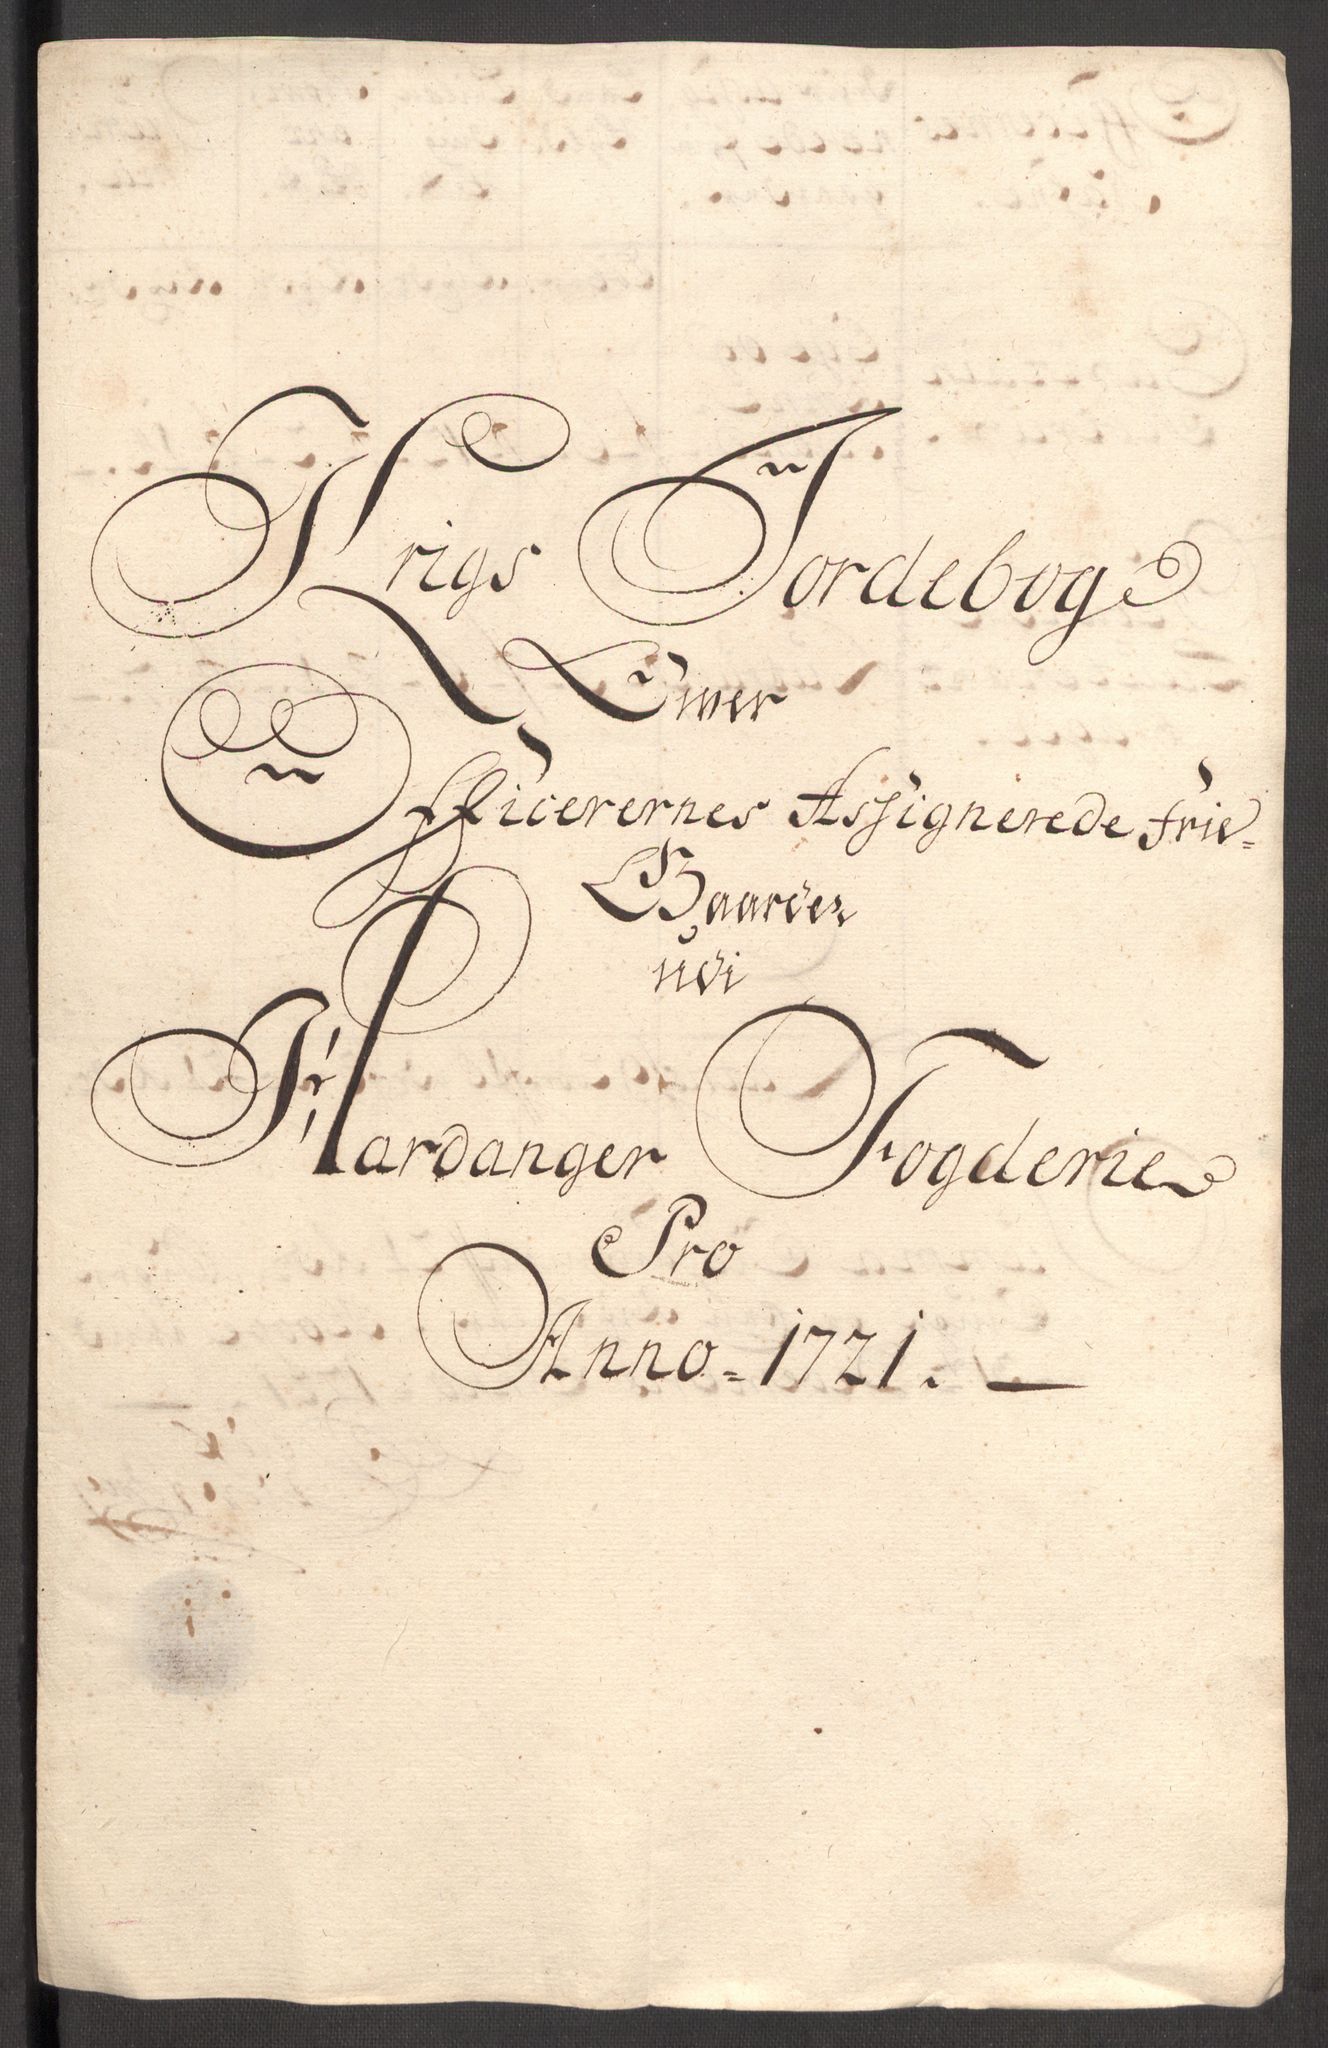 Krigs Jordebog
Over
Officerernes Assignerede Frie=
Gaarder
udi
Hardanger Fogderie
Pro
Anno = 1721. —